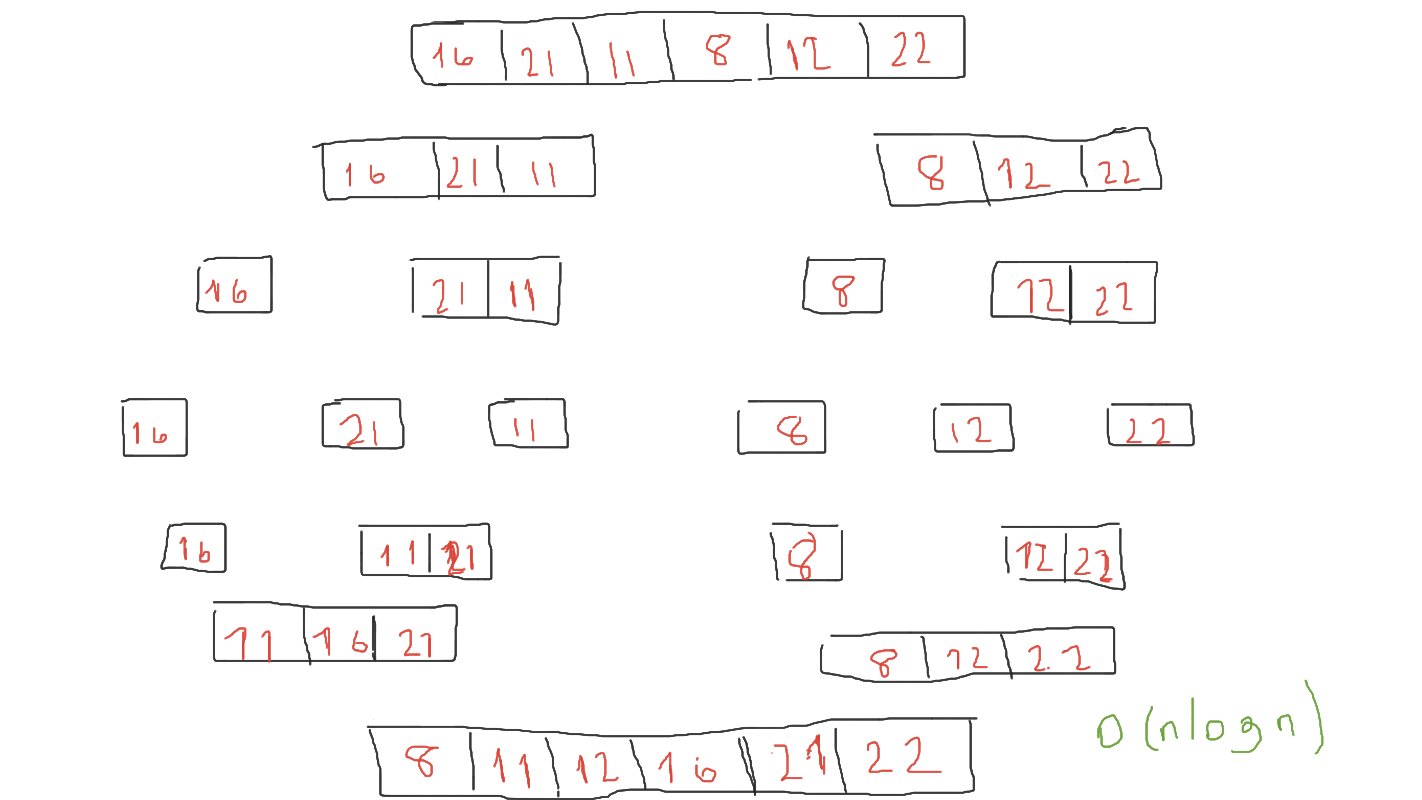 16 21 11 8 12 22
16 21 11 8 12 22
16 21 11 8 12 22
16 21 11 8 12 22
16 11 21 8 12 22
11 16 21 8 12 22
O(nlogn)
8 11 12 16 21 22